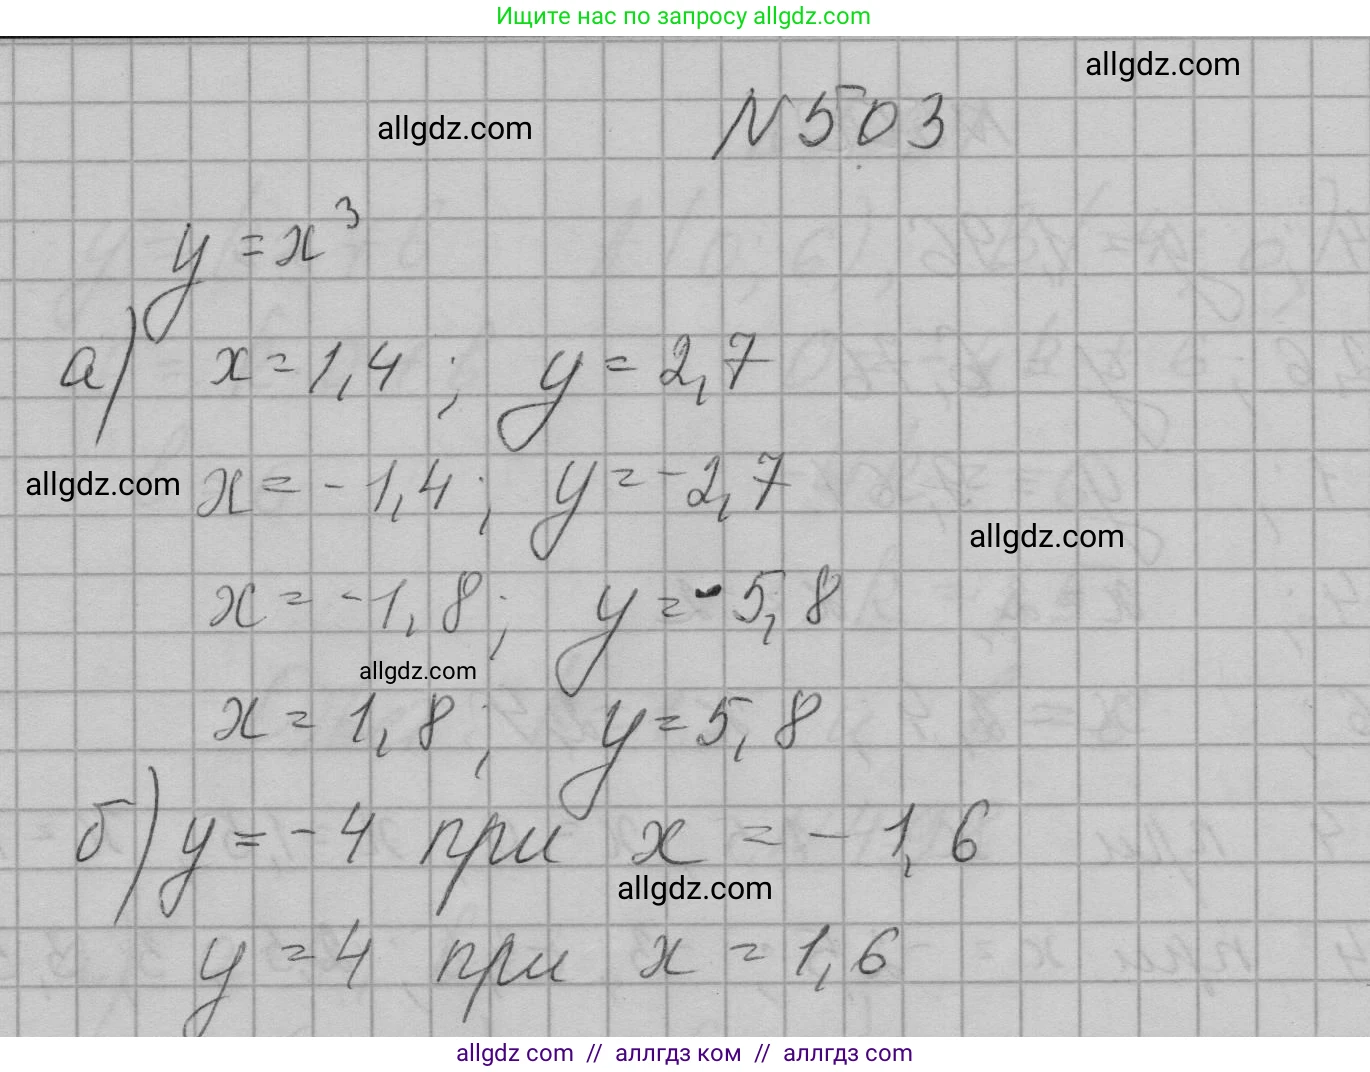 Ищите нас по запросу allgdz.com
allgdz.com
allgdz.com
N 503
y = x³
а) x = 1,4 ; y = 2,7
allgdz.com
x = - 1,4 ; y = -2,7
allgdz.com
x = -1,8 ; y = -5,8
allgdz.com
x = 1,8 ; y = 5,8
б) y = -4 при x = - 1,6
allgdz.com
y = 4 при x = 1,6
allgdz com // аллгдз ком // аллгдз.com